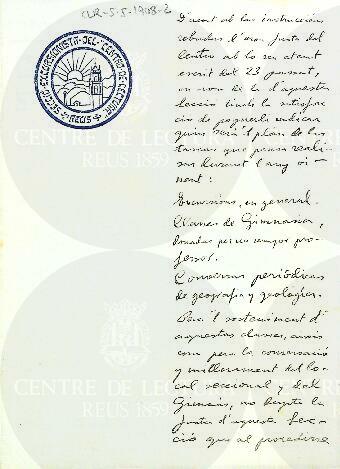 CLR-S-5-1908-2
SECCIÓ EXCURSIONISTA DEL CENTRE DE LECTURA
REUS
D'acort ab las instruccions
rebudas d'eixa Junta del
Centro ab lo seu atent
escrit del 23 passat,
en nom de la d'aquesta
Secció tinch la satisfac-
ció de poguerli indicar
quin será'l plan de las
tascas que pensa reali-
sar durant l'any vi-
nent:
Excursions, en general.
Classes de Gimnasia,
donadas per un 
professor.
Conversas periódicas
de geografia y geologia.
Per'l sosteniment d'
aquestas classes, aixis
com pera la conservació
y millorament del lo-
cal seccional y del
Gimnás, no dupte la
Junta d'aquesta Sec-
ció que al procedirse
CENTRE DE LECTURA
REUS 1859
CENTRE DE LECTURA
REUS 1859